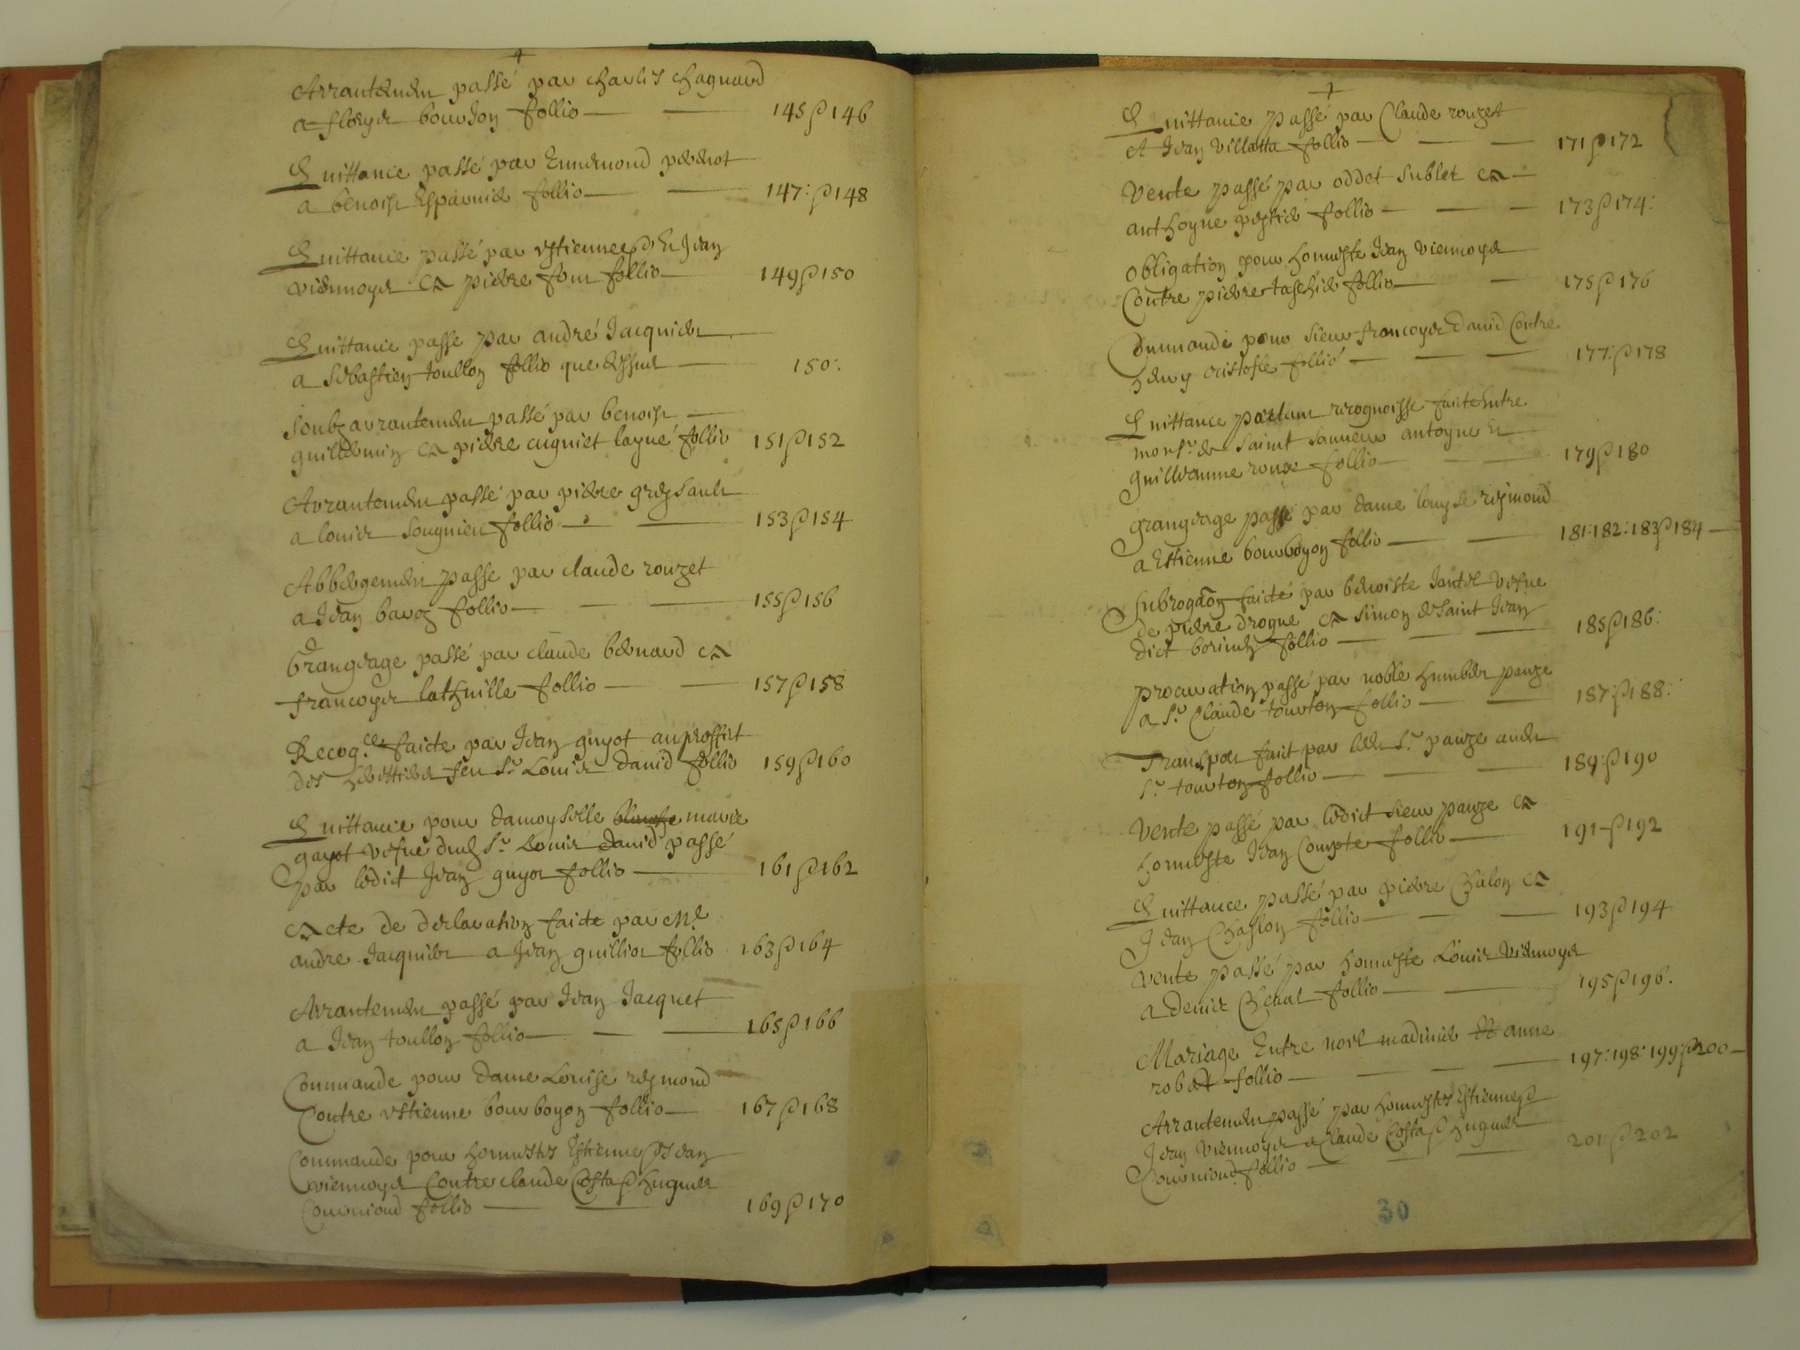 Arrantemen passé par Charles Chaguard
a fleurye bourdon follio 145 & 146
Quittance passé par Ennemond perrot
a benoist Esparnier follio 147: & 148
Quittance passé par estienne & Et Jean
viennoys Et pierre four follio 149 & 150
Quittance passe par andré Jacquier
a Sebastien toullon follio que dessus 150:
Soubzarrantemen passé par benoist
guillermin Et pierre cugniet layné follio 151 & 152
Arrantemen passé par pierre
a louis follio 153 & 154
Abbergemen passe par claude rouget
a Jean baroz follio 155 & 156
Grangeage passé par claude bernard Et
francoys lathuille follio 157 & 158
Recog.ce faicte par Jean guyot au proffict
des herittiers feu Sr Louis david follio 159 & 160
Quittance pour damoyselle marie
gayot vefve dud Sr Louis david passé
par ledict Jean guyot follio 161 & 162
Acte de declaration faicte par Me
andre Jacquier a Jean guilliot follio 163 & 164
Arrantemen passé par Jean Jacquet
a Jean toullon follio 165 & 166
Commande pour dame Louise reymond
Contre estienne bourboyon follio 167 & 168
Commande pour honnestes Estienne & Jean
viennoys Contre claude Costa & hugues
follio 169 & 170
Quittance passé par Claude rouget
Et Jean villatta follio 171 & 172
Vente passé par oddet sublet Et
anthoyne follio 173 & 174:
Obligation pour honneste Jean viennoys
Contre pierre follio 175 & 176
Commande pour sieur francoys david Contre
henry cristofle follio 177: & 178
Quittance recognoisse faicte Entre
monsr de Saint antoyne Et
guilleaume roux follio 179 & 180
Grangeage passé par dame louyse reymond
a Estienne bourboyon follio 181: 182: 183 & 184
Subrogaon faicte par benoiste vefve
de pierre drogue Et Simon de Saint Jean
dict follio 185 & 186:
procuration passé par noble humbert
a Sr Claude tourton follio 187: & 188:
Transport faict par led Sr aud
Sr tourton follio 189: & 190
Vente passé par ledict sieur Et
honneste Jean Compte follio 191 & 192
Quittance passé par pierre Chalon Et
Jean Chaslon follio 193 & 194
Vente passé par honneste Louis viennoys
a denis follio 195 & 196.
Mariage Entre noel Et anne
robat follio 197: 198: 199: & 200
Arrantemen passé par honnestes Estienne &
Jean viennoys a Claude Costa & hugues
follio 201 & 202
30